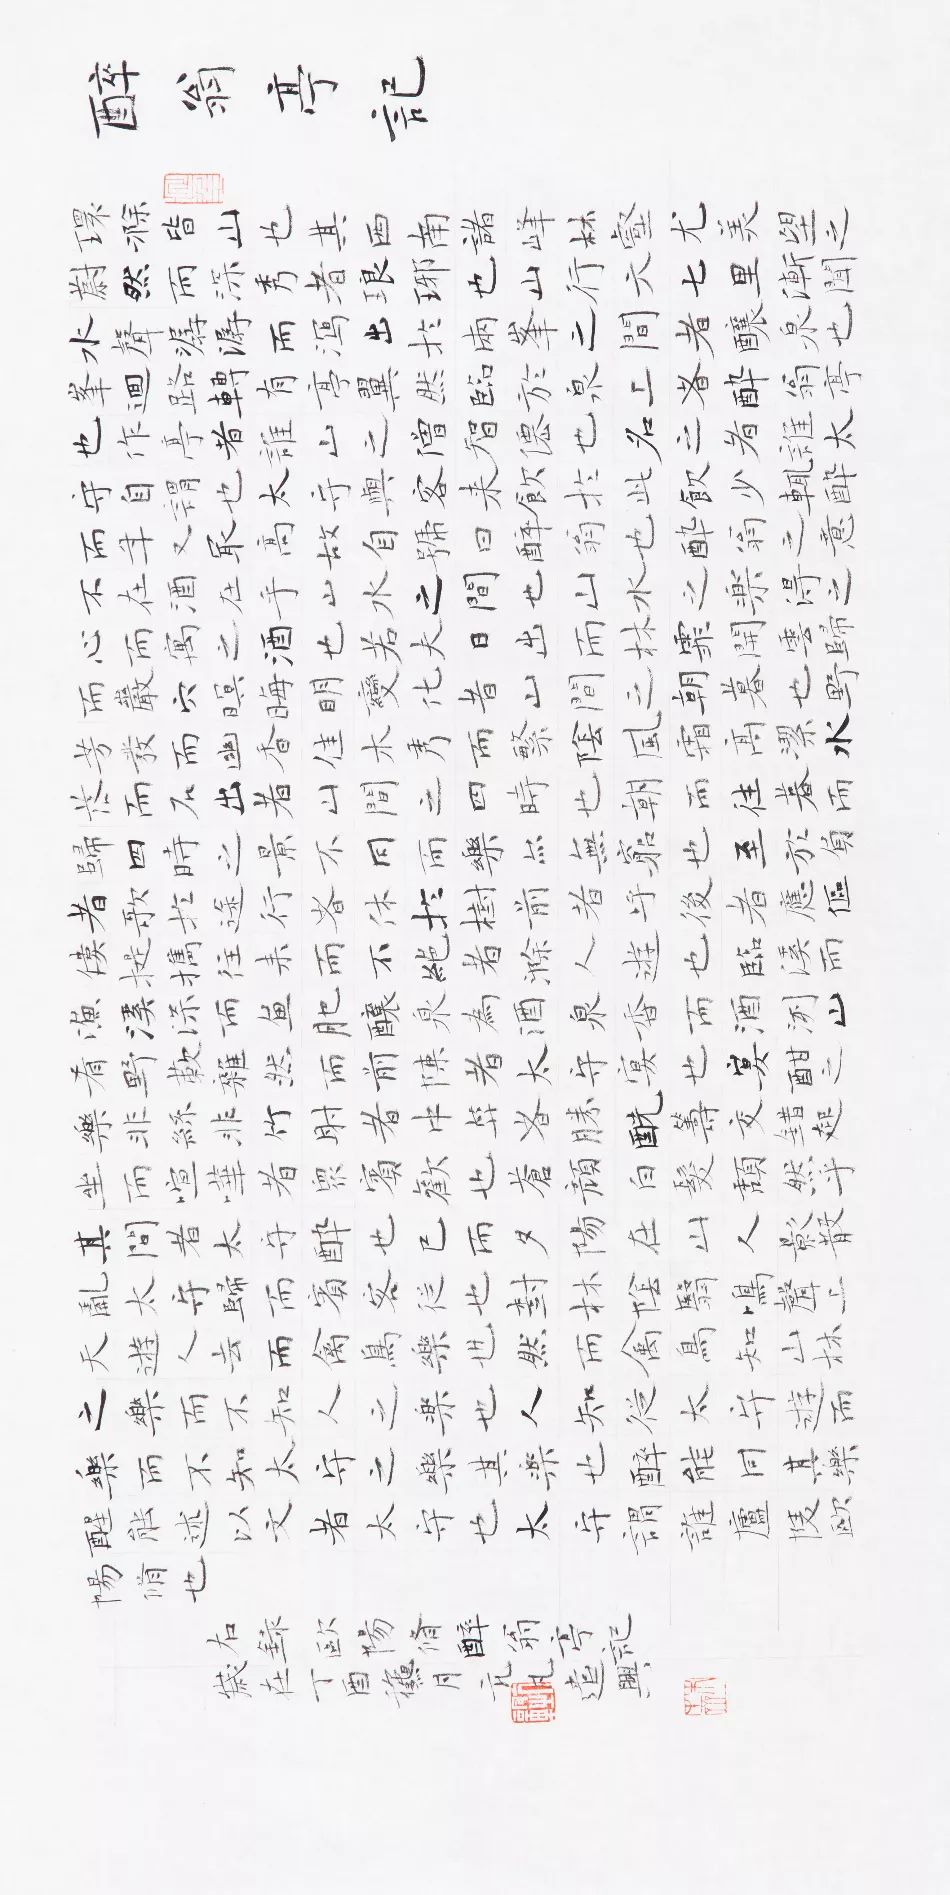 醉翁亭記
環滁皆山也其西南諸峰林壑尤美望之
蔚然而深秀者琅琊也山行六七里漸聞
水聲潺潺而瀉出於兩峯之間者釀泉也
峯迴路轉有亭翼然臨於泉上者醉翁亭
也作亭者誰山之僧智僊也名之者誰太
守自謂也太守與客來飲於此飲少輒醉
而年又最高故自號曰醉翁也醉翁之意
不在酒在乎山水之間也山水之樂得之
心而寓之酒也若夫日出而林霏開雲歸
而巖穴暝晦明變化者山間之朝暮也野
芳發而幽香佳木秀而繁陰風霜高潔水
落而石出者山間之四時也朝而往暮而
歸四時之景不同而樂亦無窮也至於負
者歌於途行者休於樹前者呼後者應傴
僂提攜往來而不絕者滁人遊也臨溪而
漁溪深而魚肥釀泉為酒泉香而酒洌山
肴野蔌雜然而前陳者太守宴也宴酣之
樂非絲非竹射者中弈者勝觥籌交錯起
坐而喧嘩者眾賓歡也蒼顏白髮頹然乎
其間者太守醉也已而夕陽在山人影散
亂太守歸而賓客從也樹林陰翳鳴聲上
下遊人去而禽鳥樂也然而禽鳥知山林
之樂而不知人之樂也人知從太守遊而
樂而不知太守之樂其樂也醉能同其樂
醒能述以文者太守也太守謂誰廬陵歐
陽脩也
右錄歐陽脩醉翁亭記
歲在丁酉穐月元凡遣興